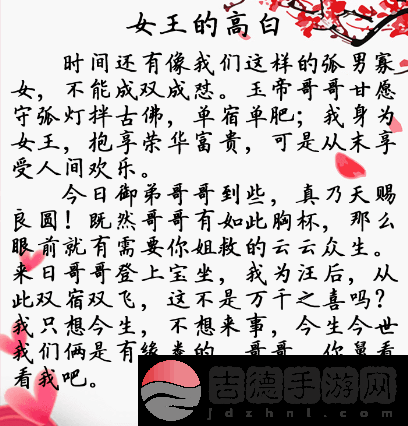 女王的高白
时间还有像我们这样的弧男寡
女，不能成双成怼。玉帝哥哥甘愿
守弧灯拌古佛，单宿单肥；我身为
女王，抱享荣华富贵，可是从末享
受人间欢乐。
今日御弟哥哥到些，真乃天赐
良圆！既然哥哥有如此胸杯，那么
眼前就有需要你姐救的云云众生。
来日哥哥登上宝坐，我为汪后，从
此双宿双飞，这不是万千之喜吗？
我只想今生，不想来事，今生今世
我们俩是有缘 的 哥哥 你舅看
看我吧。
吉德手游网
jdzhnl.com